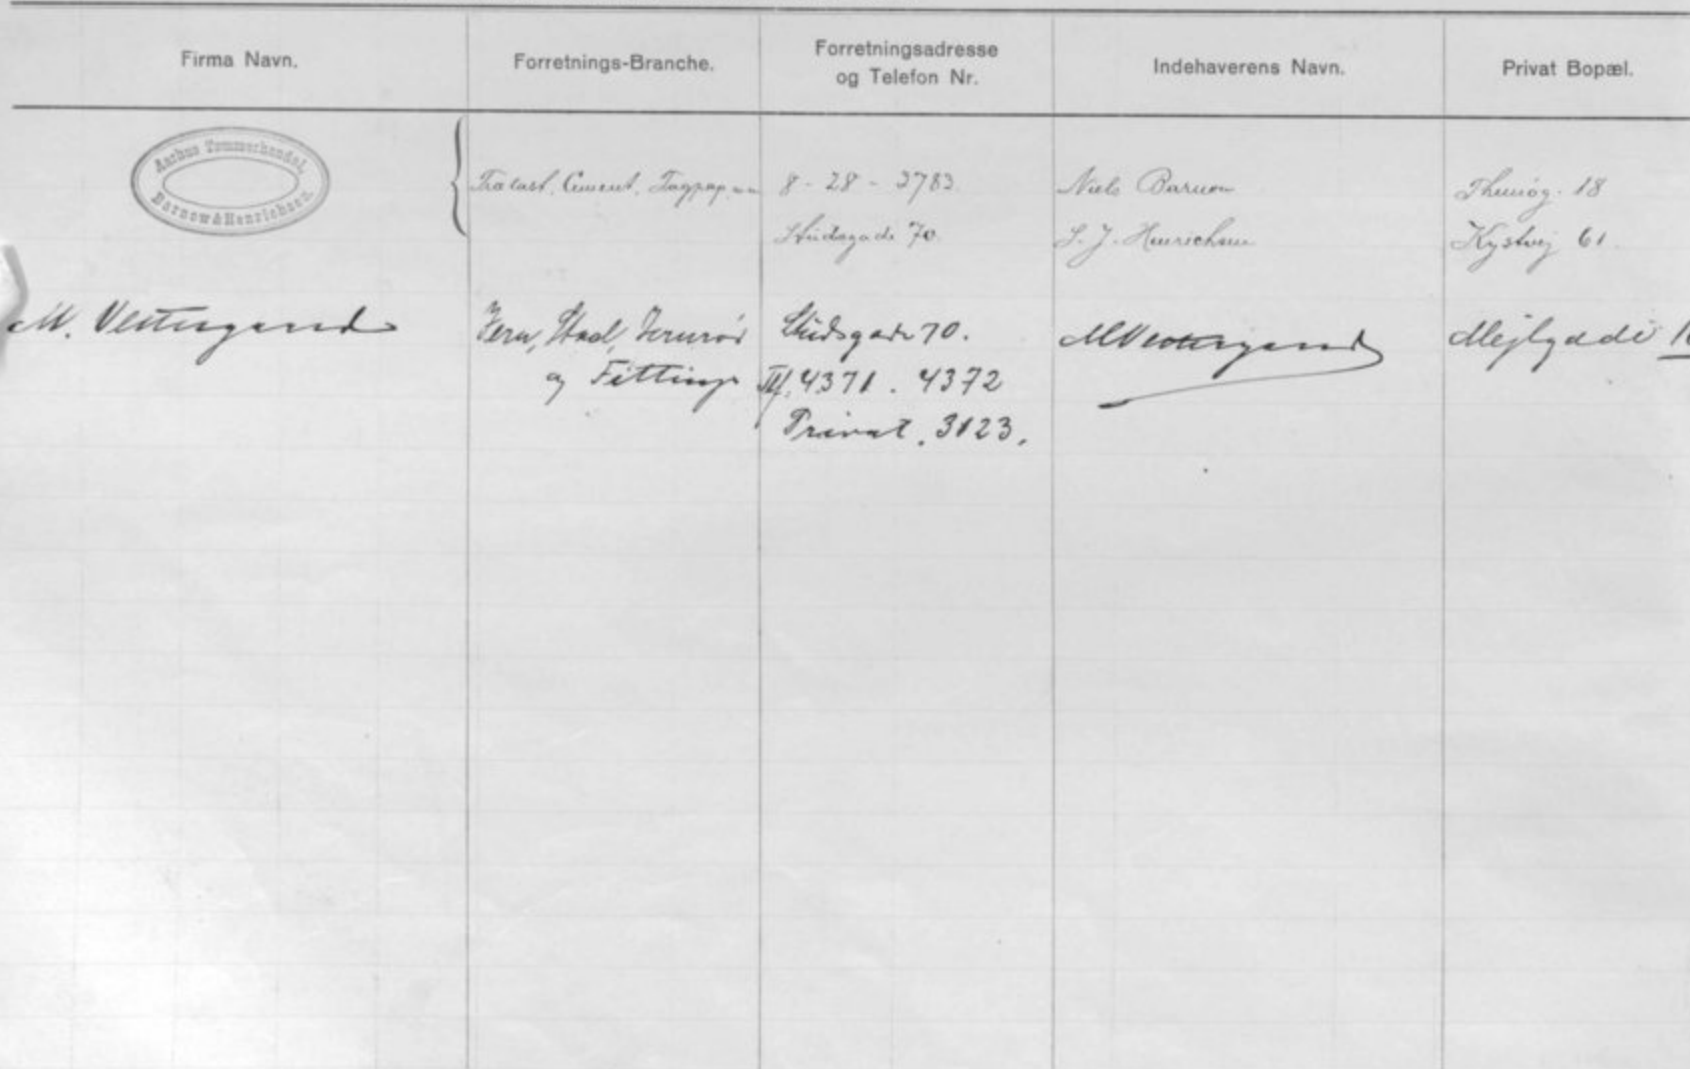 Firma Navn.
Forretnings-Branche.
Forretningsadresse
og Telefon Nr.
Indehaverens Navn.
Privat Bopæl.
Aarhus Tømmerhandel,
Barnow & Henrichsen.
Trælast, Cement, Tagpap
8 - 28 - 3783
Studsgade 70.
Niels Barnow
S. J. Henrichsen
18
Kystvej 61
M. Vestergaard
Jern, Staal, Jernrør
og Fittings
Studsgade 70.
Tlf. 4371. 4372
Privat. 3123.
M Vestergaard
Mejlgade